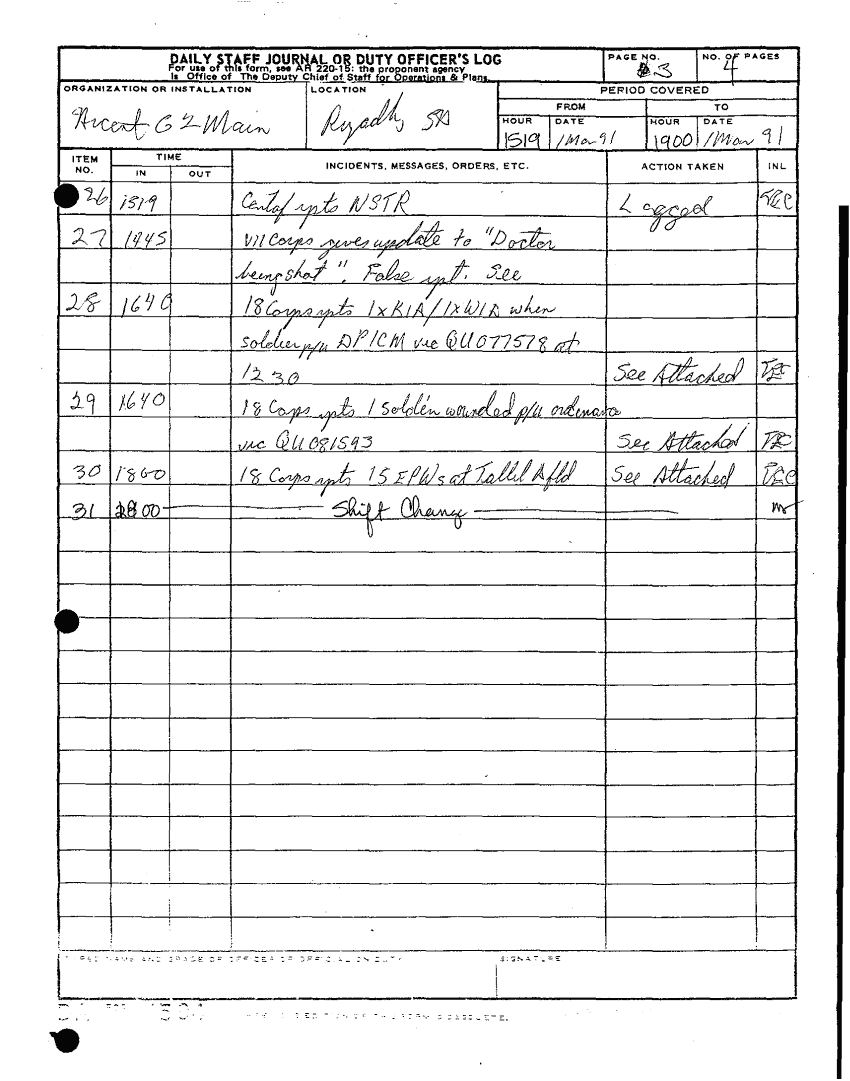 DAILY STAFF JOURNAL OR DUTY OFFICER'S LOG
For use of this form, see AR 220-15: the proponent agency
is Office of The Deputy Chief of Staff for Operations & Plans.
PAGE NO. 3
NO. OF PAGES 4
ORGANIZATION OR INSTALLATION
Arcent G2 Main
LOCATION
Riyadh, SA
PERIOD COVERED
FROM TO
HOUR DATE HOUR DATE
1519 1 Mar 91 1900 1 Mar 91
ITEM NO. TIME IN OUT INCIDENTS, MESSAGES, ORDERS, ETC. ACTION TAKEN INL
26 1519 Centaf rpts NSTR Logged
27 1445 VII Corps gives update to "Doctor
being shot". False rpt. See
28 1640 18 Corps rpts 1xKIA/1xWIA when
soldier p/u DPICM vic QU077578 at
1230 See Attached
29 1640 18 Corps rpts 1 Soldier wounded p/u ordinance
vic QU081593 See Attached
30 1800 18 Corps rpts 15 EPWs at Tallil Afld See Attached
31 1800 Shift Change
TYPED NAME AND GRADE OF OFFICER OR OFFICIAL ON DUTY
SIGNATURE